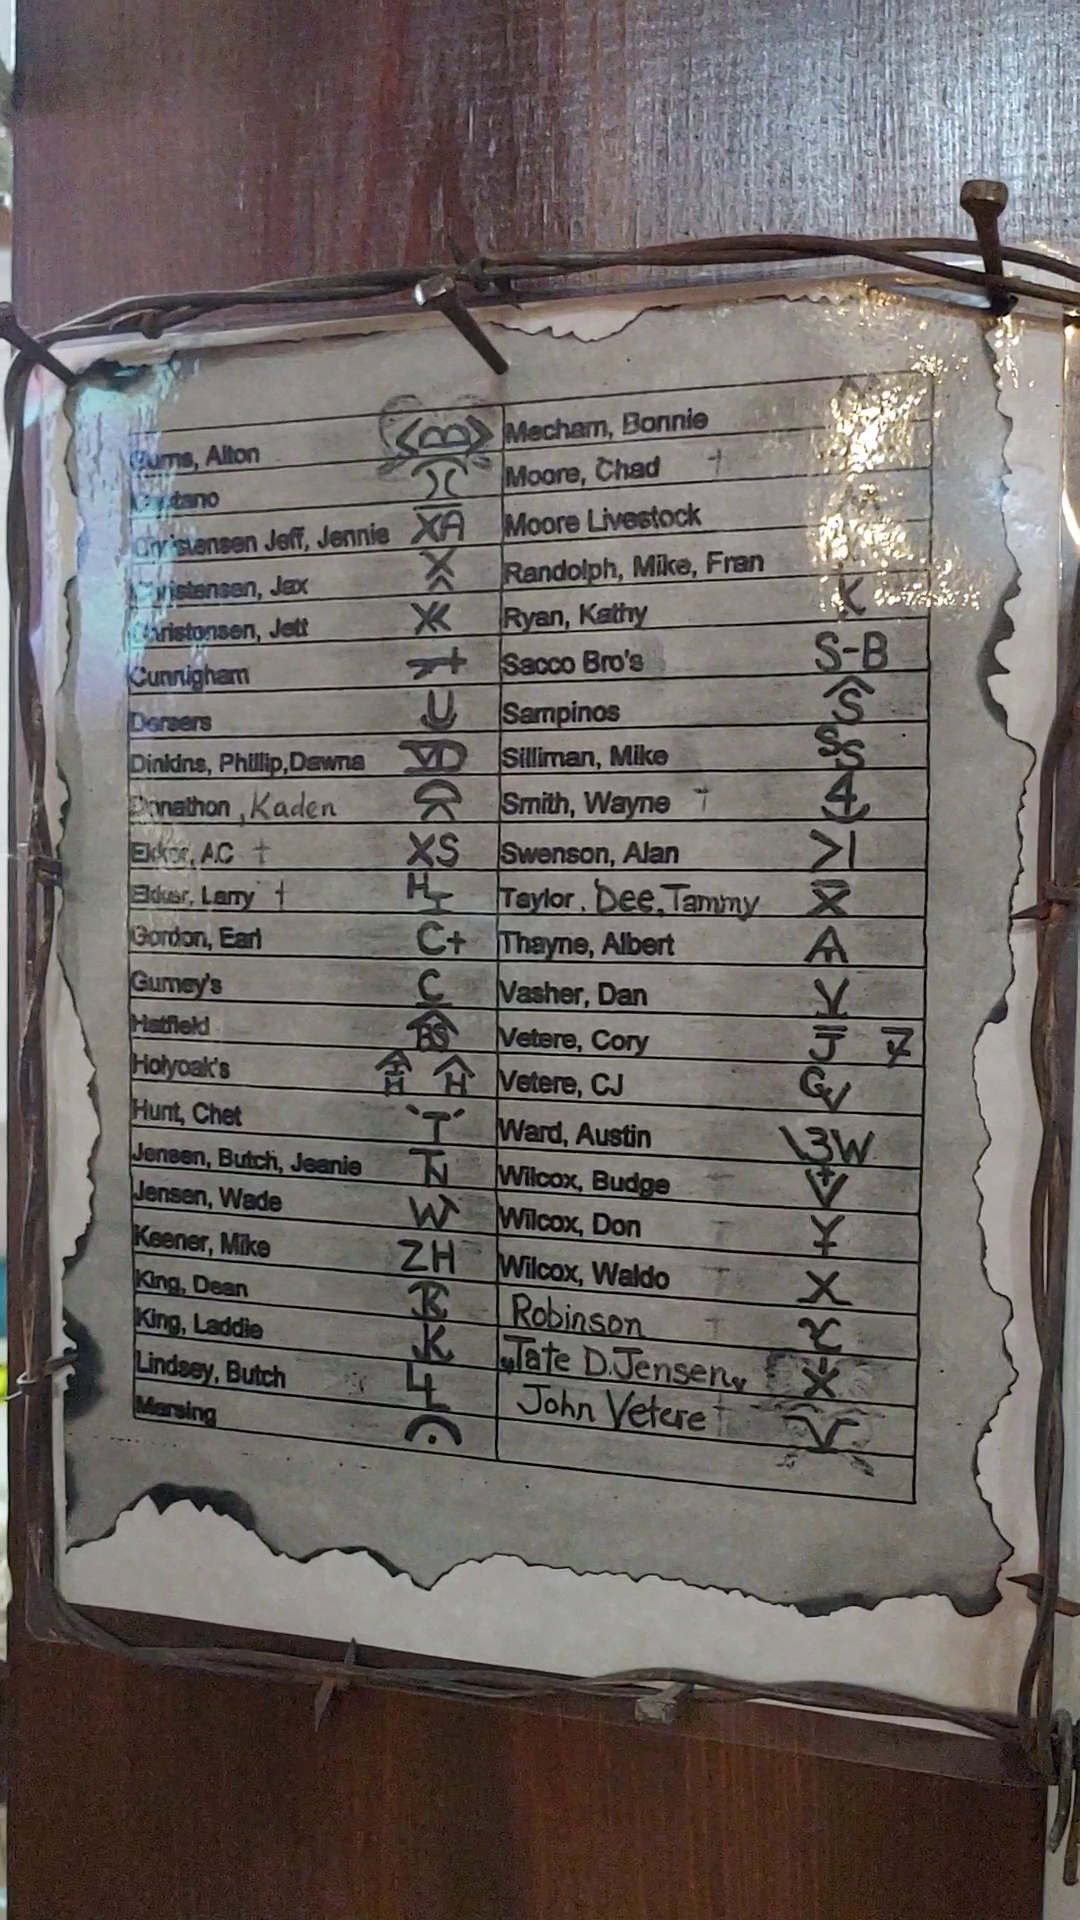 Alton
Christensen Jeff, Jennie XA
Christensen, Jax
Christensen, Jett
Cunnigham
Dinkins, Phillip,Dawna VD
Donathon, Kaden
Ekker, AC † XS
Ekker, Larry † H I
Gordon, Earl C+
Gurney's C
Hatfield BS
Holyoak's H H
Hunt, Chet T
Jensen, Butch, Jeanie TN
Jensen, Wade W
Keener, Mike ZH
King, Dean
King, Laddie K
Lindsey, Butch
Marsing
Mecham, Bonnie
Moore, Chad †
Moore Livestock
Randolph, Mike, Fran
Ryan, Kathy K
Sacco Bro's S-B
Sampinos S
Silliman, Mike SS
Smith, Wayne † 4
Swenson, Alan >I
Taylor, Dee, Tammy X
Thayne, Albert
Vasher, Dan
Vetere, Cory J
Vetere, CJ
Ward, Austin \3W
Wilcox, Budge V
Wilcox, Don
Wilcox, Waldo X
Robinson
Tate D. Jensen
John Vetere †